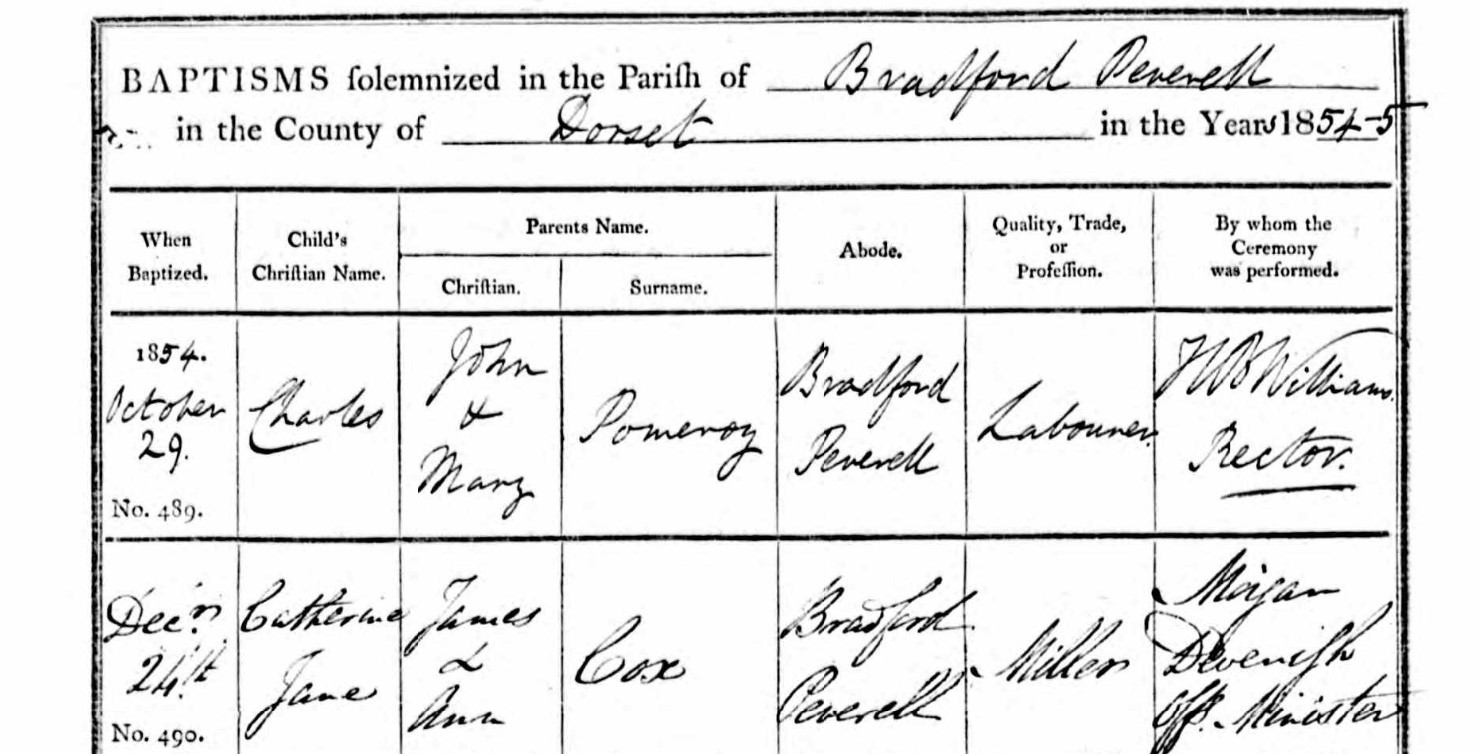 BAPTISMS ſolemnized in the Pariſh of Bradford Peverell
in the County of Dorset in the Years 1854-5
When Baptized.
Child's Chriſtian Name.
Parents Name.
Chriſtian.
Surname.
Abode.
Quality, Trade, or Profeſſion.
By whom the Ceremony was performed.
1854.
October
29.
No. 489.
Charles
John
&
Mary
Pomeroy
Bradford
Peverell
Labourer
HB Williams
Rector.
Decr.
24th
No. 490.
Catherine
Jane
James
&
Ann
Cox
Bradford
Peverell
Miller
Devenish
Offg. Minister